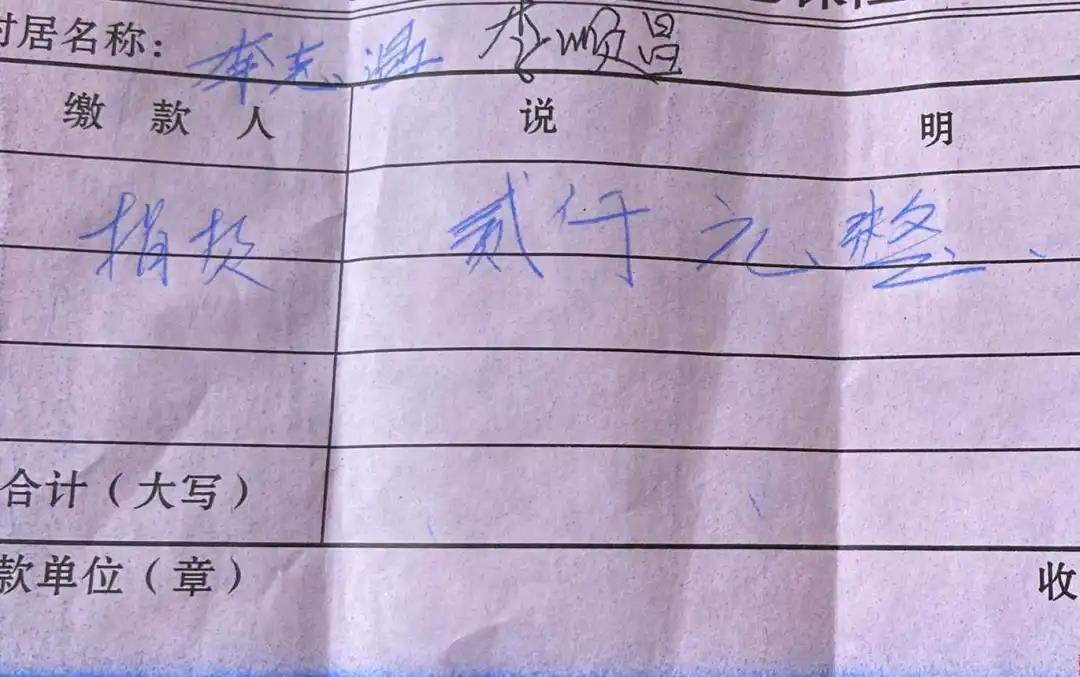 村居名称： 李志温 李顺昌
缴款人 说明
捐资 贰仟元整、
合计（大写）
款单位（章） 收